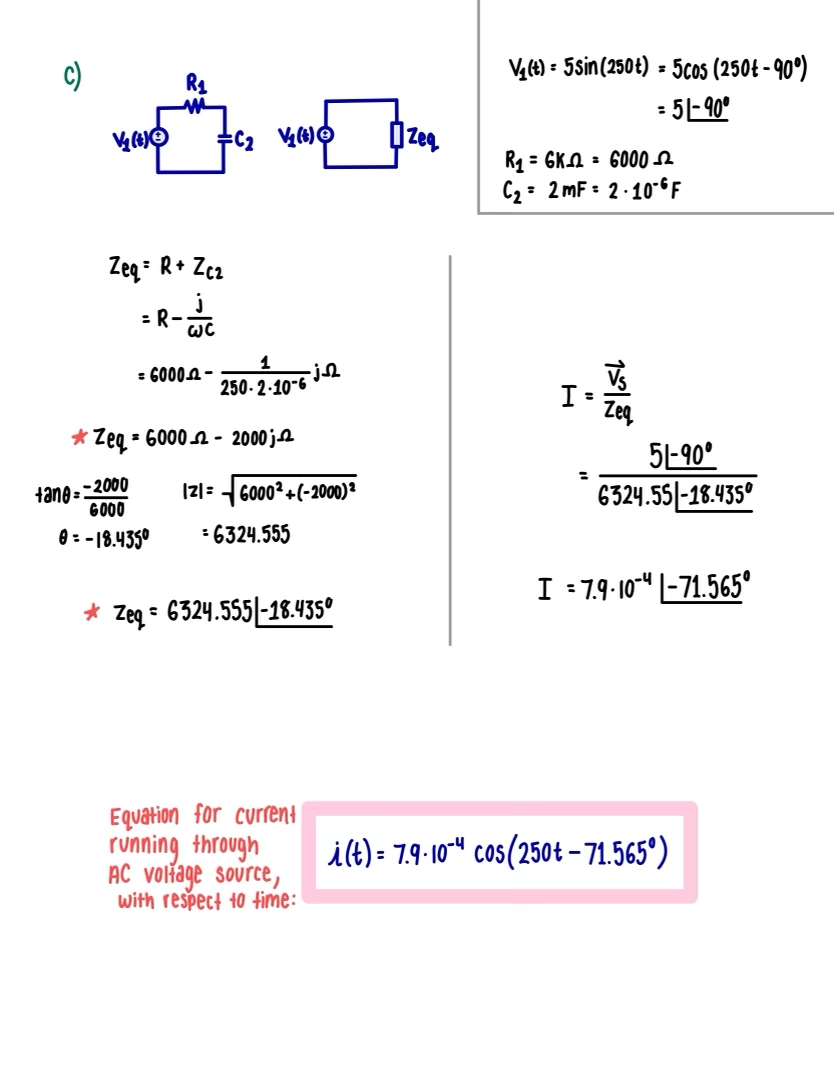 c)
R₁
V₁(t)
C₂
V₁(t)
Zeq
V₁(t) = 5sin(250t) = 5cos (250t - 90°)
= 5∠-90°
R₁ = 6KΩ = 6000 Ω
C₂ = 2mF = 2·10⁻⁶ F
Zeq = R + Z_C2
= R - j/ωC
= 6000Ω - 1/(250·2·10⁻⁶) jΩ
* Zeq = 6000 Ω - 2000jΩ
tanθ = -2000/6000
θ = -18.435°
|z| = √(6000² + (-2000)²)
= 6324.555
* Zeq = 6324.555∠-18.435°
I = V⃗s/Zeq
= 5∠-90° / 6324.55∠-18.435°
I = 7.9·10⁻⁴ ∠-71.565°
Equation for current
running through
AC voltage source,
with respect to time:
i(t) = 7.9·10⁻⁴ cos(250t - 71.565°)